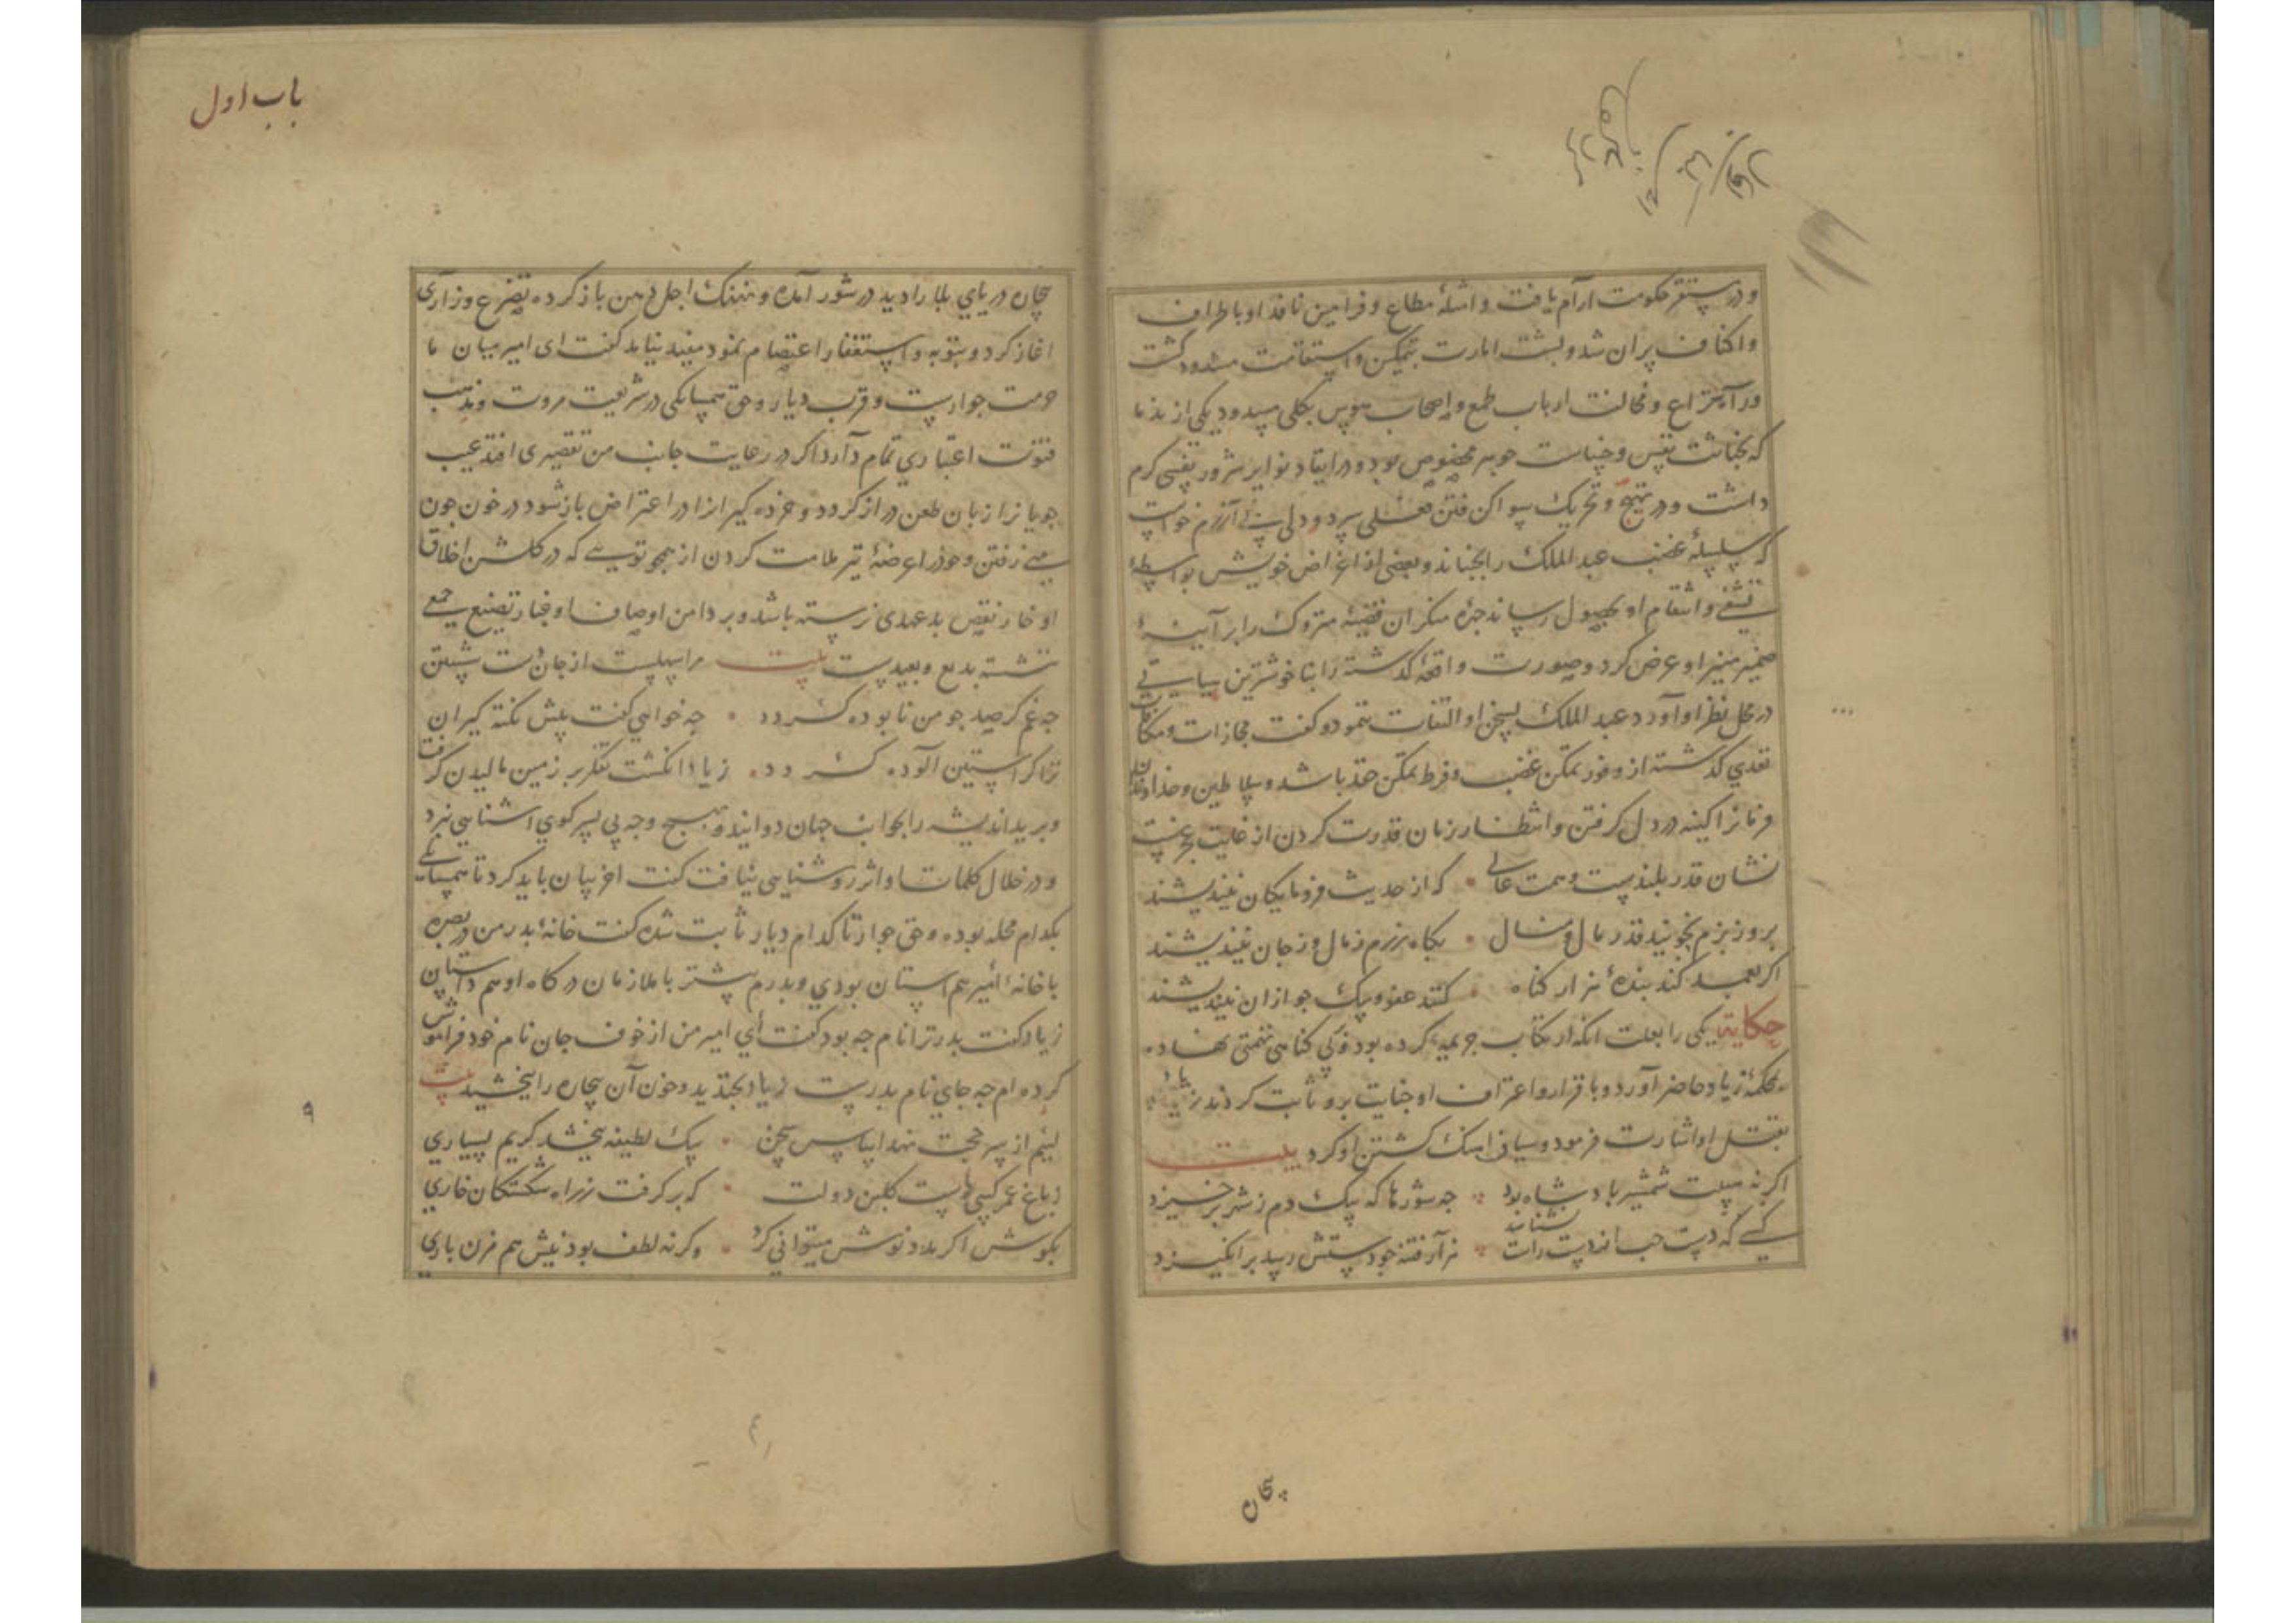 و در مستقر حکومت آرام یافت و امثلهٔ مطاع و فرامین نافذ او باطراف
و اکناف پران شد و پشت امارت بتمکین و استقامت مشدود گشت
و راه نزاع و مخالفت ارباب طمع و اصحاب هوس بکلی مسدود یکی از ندما
که بخباثت نفس و خساست جوهر مخصوص بود و در ایقاد نوایر شرور نفسی گرم
داشت و در تهیج و تحریک سواکن فتن دلی بی آزرم خواست
که سلسلهٔ غضب عبد الملک را بجنباند و بعضی از اغراض خویش بواسطهٔ
تشفی و انتقام او بحصول رساند جزه منکر ان قضیهٔ متروک را بر آیینهٔ
ضمیر منیر او عرض کرد و صورت واقعهٔ گذشته را بنا خوشترین سیاستی
در محل نظر او آورد عبد الملک بسخن او التفات ننمود و گفت مجازات و مکافات
تعدی گذشته از وفور تمکن غضب و فرط تمکن حقد باشد و سلاطین و خداوندان
فرمانرا کینه در دل گرفتن و انتظار زمان قدرت کردن از غایت عجزست
نشان قدر بلندست و همت عالی که از حدیث فرومایگان نیندیشند
بروز بزم نجویند قدر مال و منال بگاه رزم ز مال و ز جان نیندیشند
اگر بعمد کند بندهٔ هزار گناه کنند عفو و یک جو ازان نیندیشند
حکایت یکی را بعلت انکه ارتکاب جریمه کرده بود و بی گناهی تهمتی نهاده
بمحکمهٔ زیاد حاضر آورد و باقرار و اعتراف او جنایت برو ثابت کردند زیاد
بقتل او اشارت فرمود و سیاف اهنگ کشتن او کرد بیت
اگر نه سیلت شمشیر پادشاه بود چه شورها که بیک دم ز شهر برخیزد
کسی که دست اند دست راست نشناسد هزار فتنه چو دستش رسید بر انگیزد
بیچاره
باب اول
بیچاره دریای بلا را دید در شور آمده و نهنک اجل دهن باز کرده تضرع و زاری
اغاز کرد و بتوبه و استغفار اعتصام نمود مفید نیامد گفت ای امیر میان ما
حرمت جوارست و قرب دیار و حق همسایکی در شریعت مروت و مذهب
فتوت اعتباری تمام دارد اگر در رعایت جانب من تقصیری افتد عیب
جویانرا زبان طعن دراز کردد و خرده گیرانرا در اعتراض باز شود در خون چون
منی رفتن و خود را عرضهٔ تیر ملامت کردن از همچو تویی که در کلشن اخلاق
او خار نقص بد عهدی نرسته باشد و بر دامن اوصاف او غبار تضییع جمعی
ننشسته بدیع و بعیدست بیت مرا سهلست از جان دست شستن
چه غم گر صد چو من نابوده گردد چه خواهی گفت پیش نکته گیران
ترا گر استین آلوده گردد زیاد انگشت تفکر بر زمین مالیدن گرفت
و برید اندیشه را بجوانب جهان دوانید و بهیچ وجه پی بسر کوی اشنایی نبرد
و در خلال کلمات او اثر روشنایی نیافت گفت اخر بیان باید کرد تا همسایکی
بکدام محله بوده و حق جوار تا کدام دیار ثابت شده گفت خانهٔ پدر من در بصره
با خانهٔ امیر هم استان بودی و پدرم پیشتر با ملازمان درگاه او هم داستان
زیاد گفت پدر ترا نام چه بود گفت ای امیر من از خوف جان نام خود فراموش
کرده ام چه جای نام پدرست زیاد بخندید و خون آن بیچاره را ببخشید بیت
لئیم از پیر حجت نهد اساس سخن بیک لطیفه ببخشد کریم بسیاری
ز باغ عمر کسی راست کلبن دولت که بر گرفت ز راه شکستگان خاری
بکوش اگر مدد نوش میتوانی کرد و گر نه لطف بود نیش هم مزن باری
۹